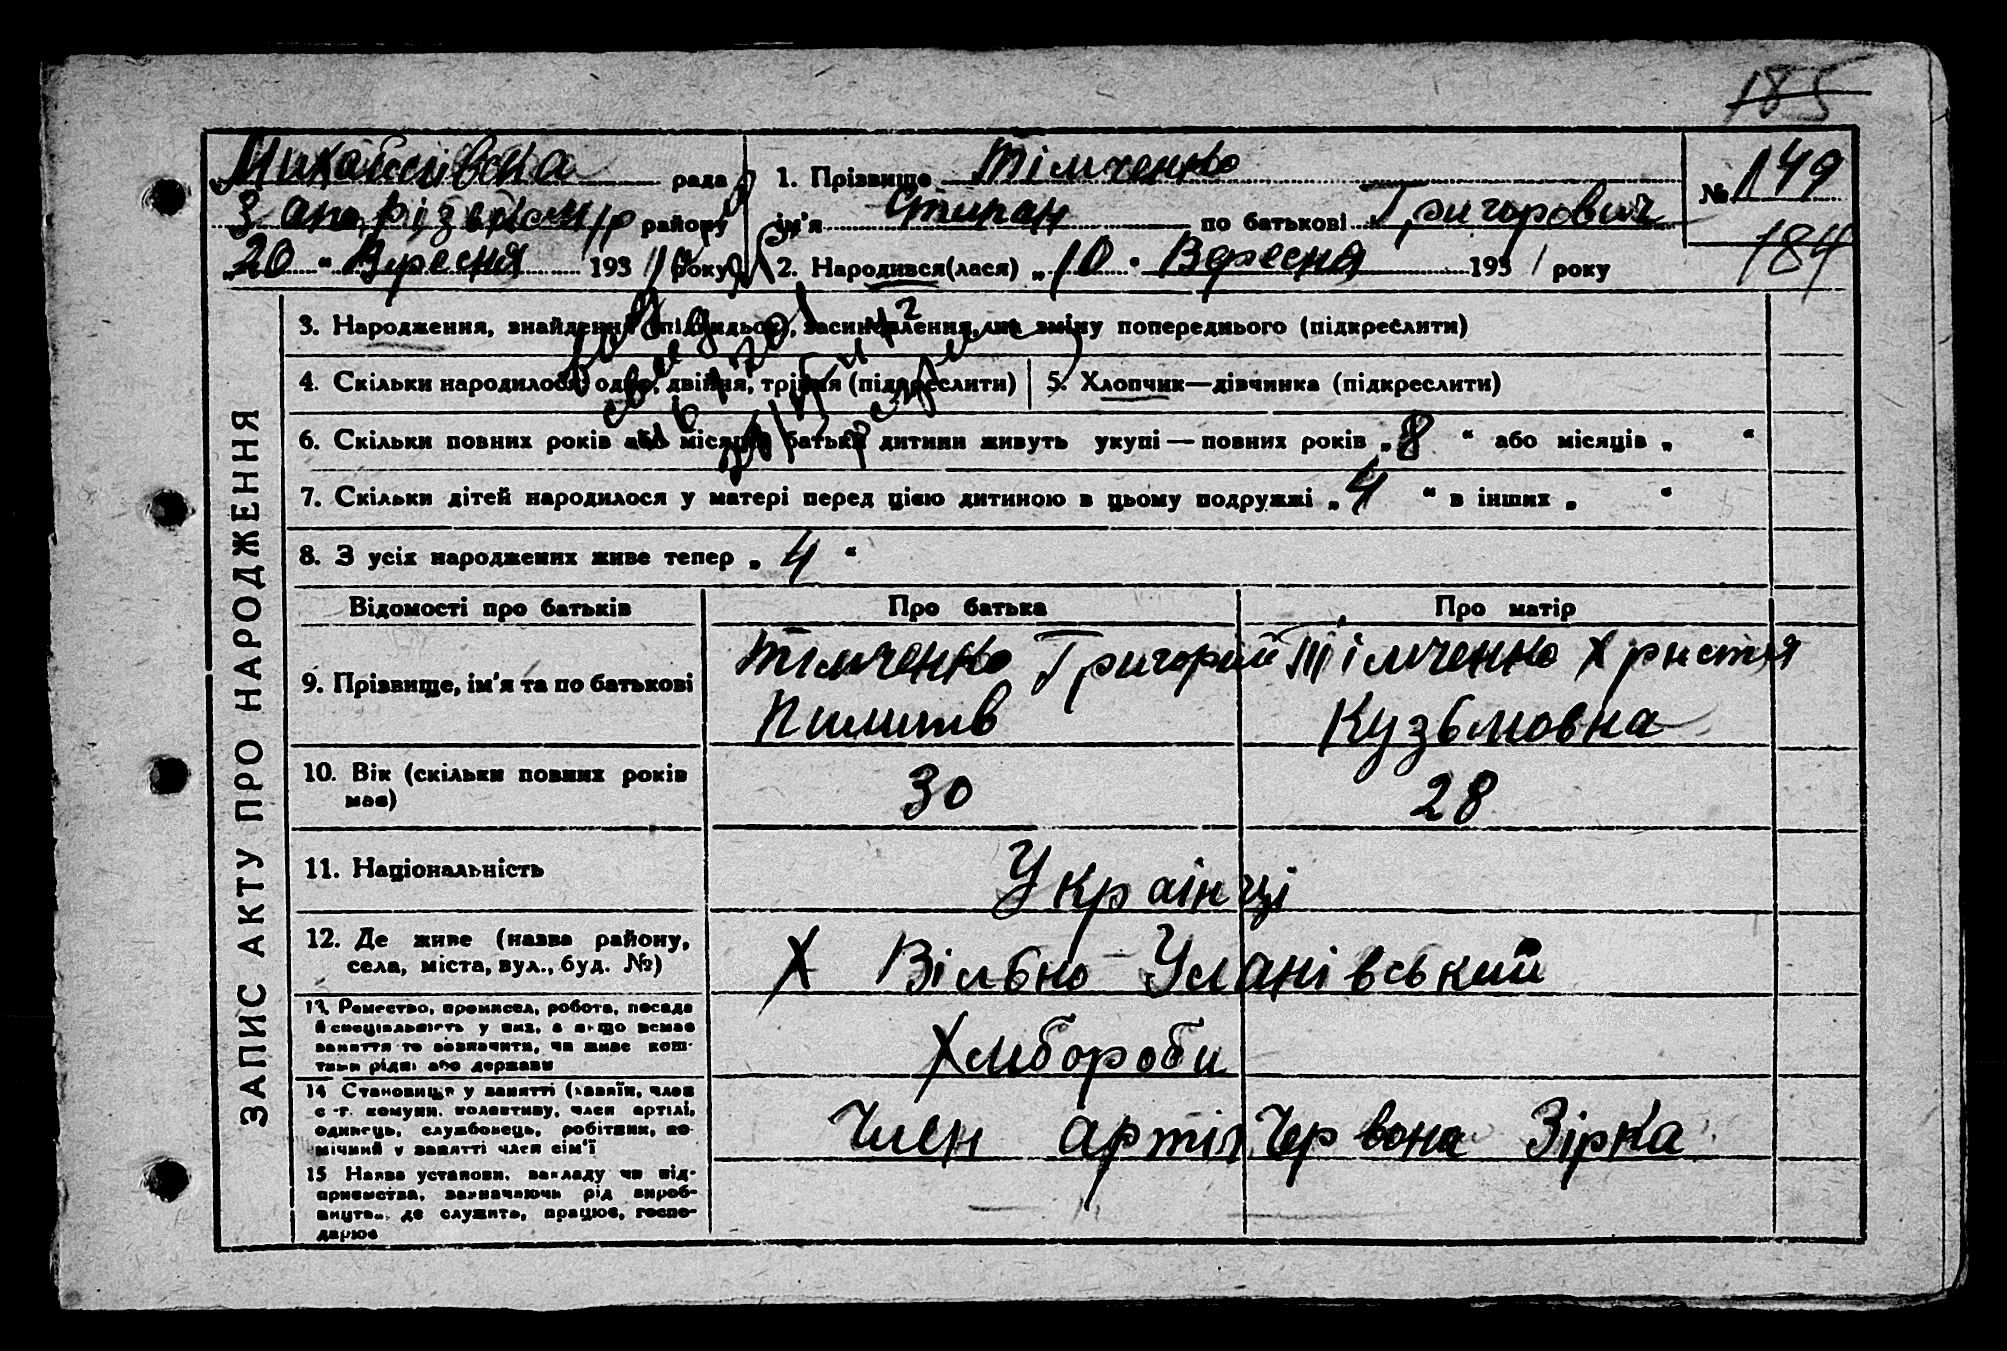 185
Михайлівска рада
Запорізького р районУ
„20“ Вересня 1931 року
1. Прізвище Тімченко
ім'я Стипан по батькові Григорович
2. Народився(лася) „10“ Вересня 1931 року
№ 149
184
ЗАПИС АКТУ ПРО НАРОДЖЕННЯ
3. Народження, знайдення (підкидьок), засиновлення, на зміну попереднього (підкреслити)
4. Скільки народилося: одно, двійня, трійня (підкреслити)
5. Хлопчик—дівчинка (підкреслити)
6. Скільки повних років або місяців батьки дитини живуть укупі — повних років „8“ або місяців „ “
7. Скільки дітей народилося у матері перед цією дитиною в цьому подружжі „4“ в інших „ “
8. З усіх народжених живе тепер „4“
Відомості про батьків
Про батька
Про матір
9. Прізвище, ім'я та по батькові
Тімченко Григорий
Пилипів
Тімченко Христя
Кузьмовна
10. Вік (скільки повних років
має)
30
28
11. Національність
Украінці
12. Де живе (назва району,
села, міста, вул., буд. №)
Х Вільно Уланівський
13. Ремество, промисел, робота, посада
й спеціальність у них, а якщо немає
заняття то зазначити, чи живе кош-
тами рідні або держави
Хлибороби
14 Становище у занятті (хазяїн, член
с.-г. комуни, колективу, член артілі,
одинець, службовець, робітник, по-
мічний у занятті член сім'ї
Член артіл Червона Зірка
15 Назва установи, закладу чи під-
приємства, зазначаючи рід вироб-
ництва, де служить, працює, госпо-
дарює